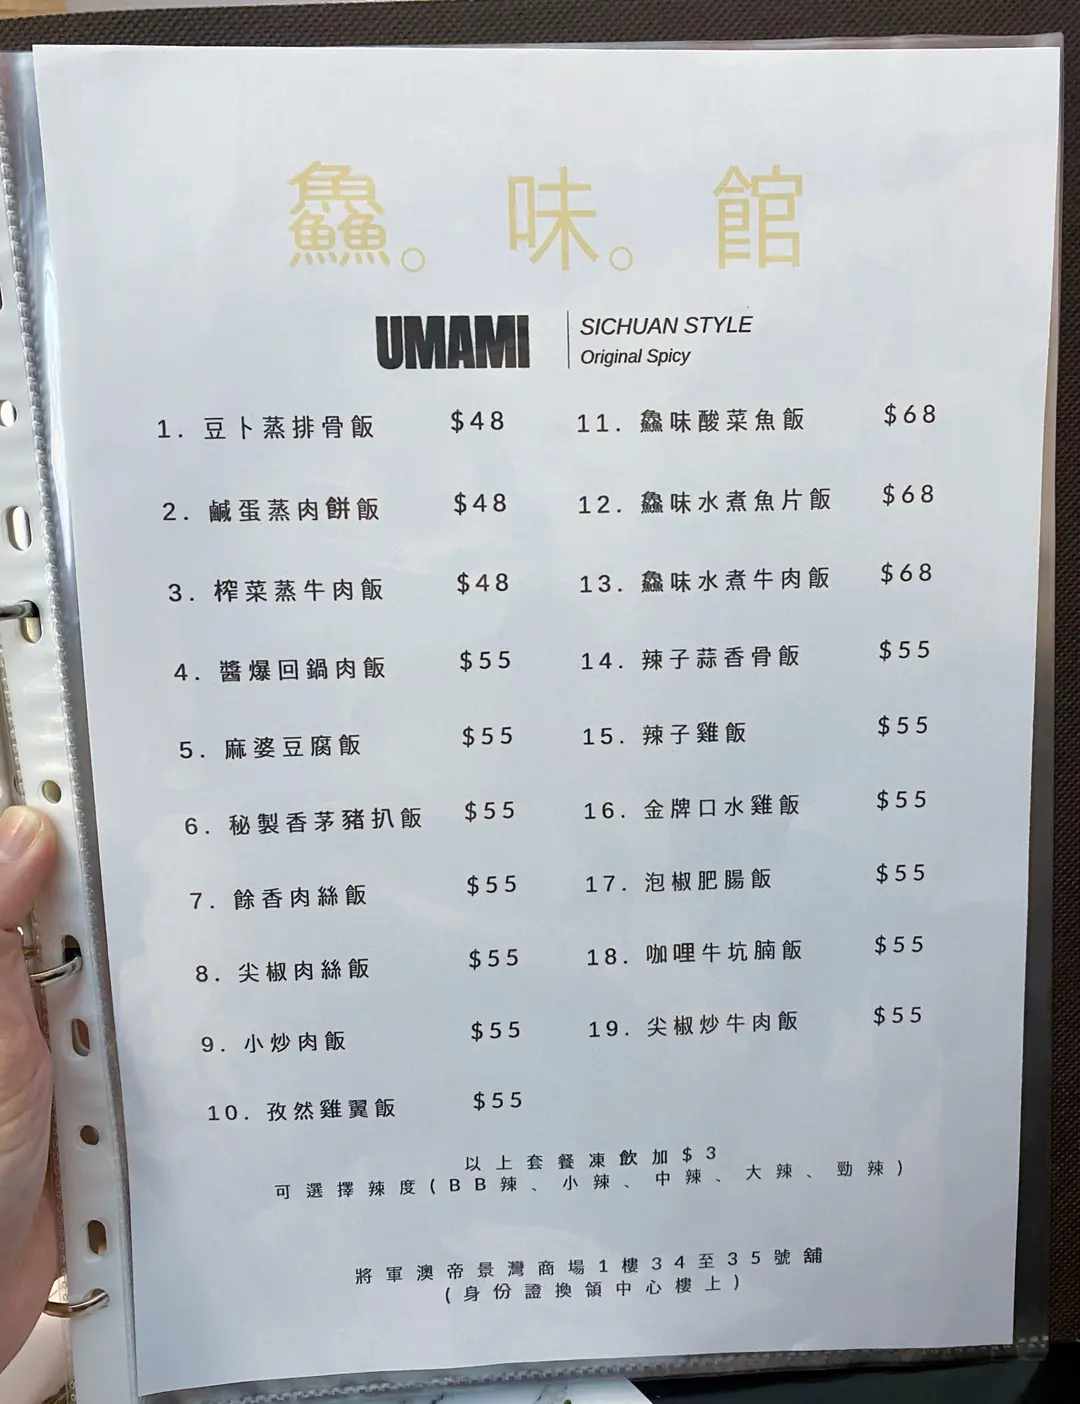 鱻。味。館
UMAMI
SICHUAN STYLE
Original Spicy
1. 豆卜蒸排骨飯 $48
2. 鹹蛋蒸肉餅飯 $48
3. 榨菜蒸牛肉飯 $48
4. 醬爆回鍋肉飯 $55
5. 麻婆豆腐飯 $55
6. 秘製香茅豬扒飯 $55
7. 餘香肉絲飯 $55
8. 尖椒肉絲飯 $55
9. 小炒肉飯 $55
10. 孜然雞翼飯 $55
11. 鱻味酸菜魚飯 $68
12. 鱻味水煮魚片飯 $68
13. 鱻味水煮牛肉飯 $68
14. 辣子蒜香骨飯 $55
15. 辣子雞飯 $55
16. 金牌口水雞飯 $55
17. 泡椒肥腸飯 $55
18. 咖哩牛坑腩飯 $55
19. 尖椒炒牛肉飯 $55
以上套餐凍飲加$3
可選擇辣度(BB辣、小辣、中辣、大辣、勁辣)
將軍澳帝景灣商場1樓34至35號舖
(身份證換領中心樓上)